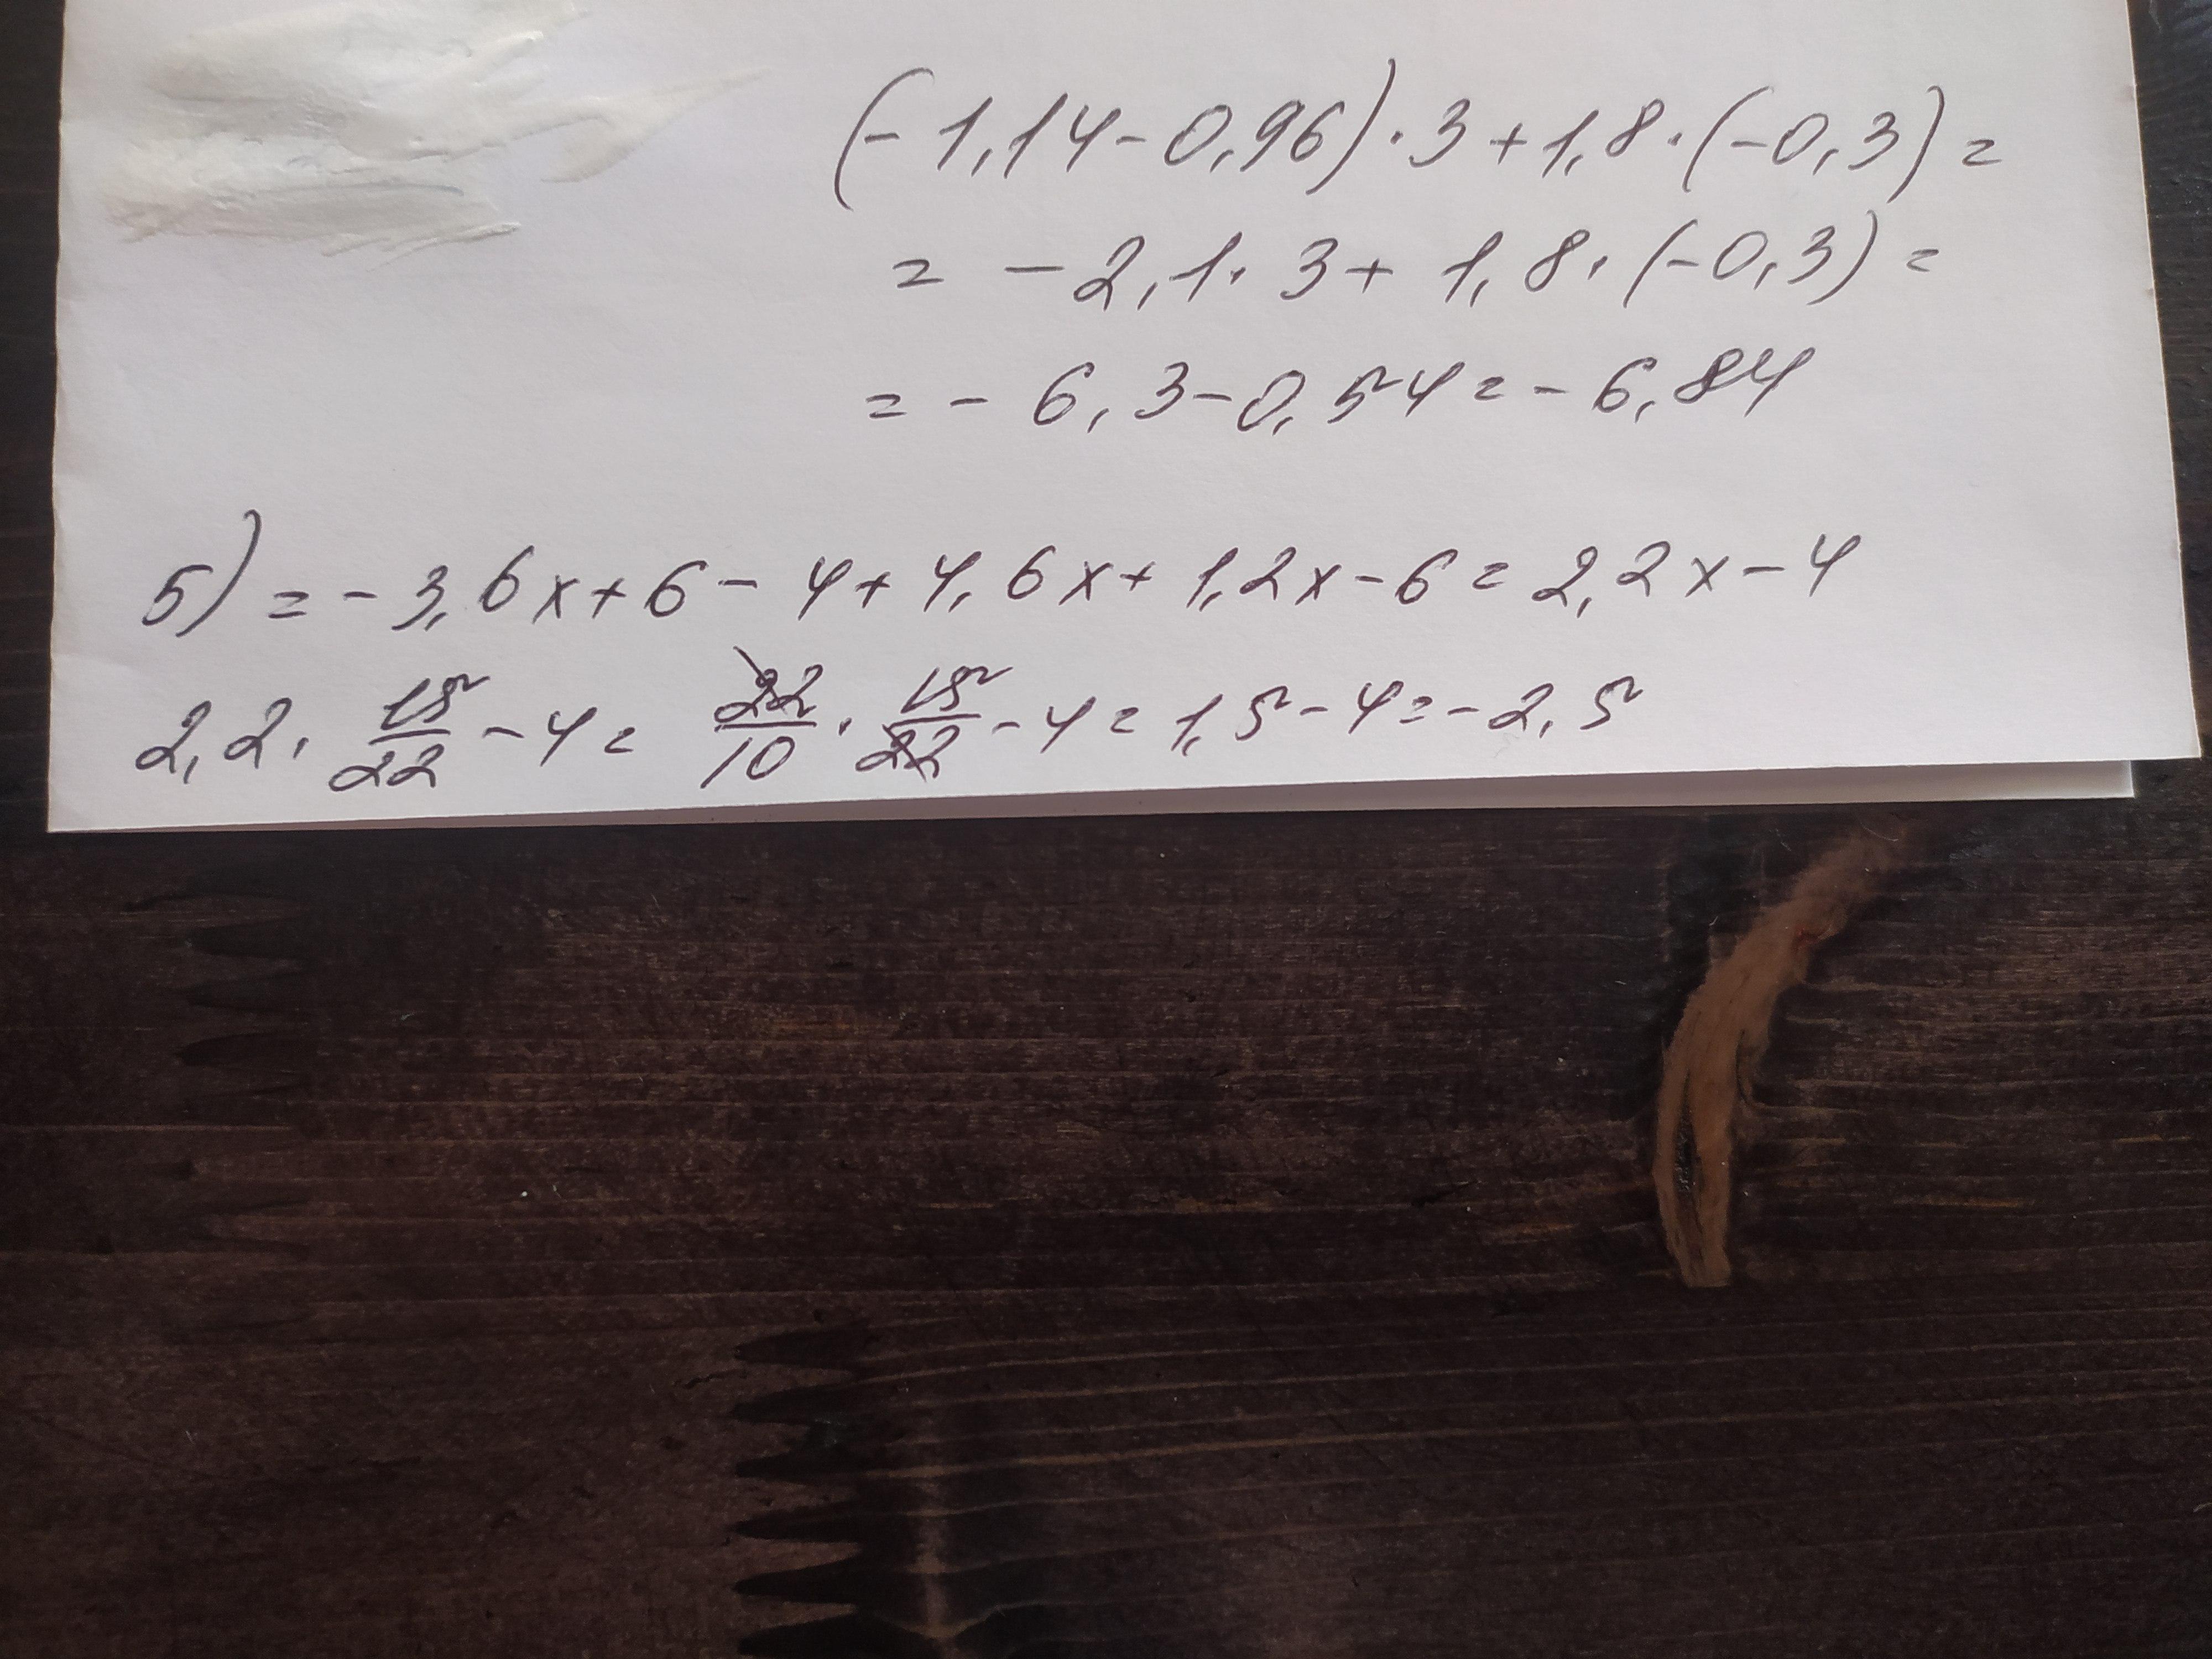 (-1,14-0,96)·3+1,8·(-0,3)=
= -2,1·3+1,8·(-0,3)=
= -6,3-0,54=-6,84
5) =-3,6x+6-4+4,6x+1,2x-6=2,2x-4
2,2·15/22-4=22/10·15/22-4=1,5-4=-2,5